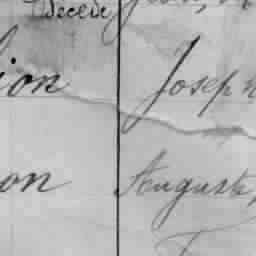 Décédé
ion Joseph
on Auguste,